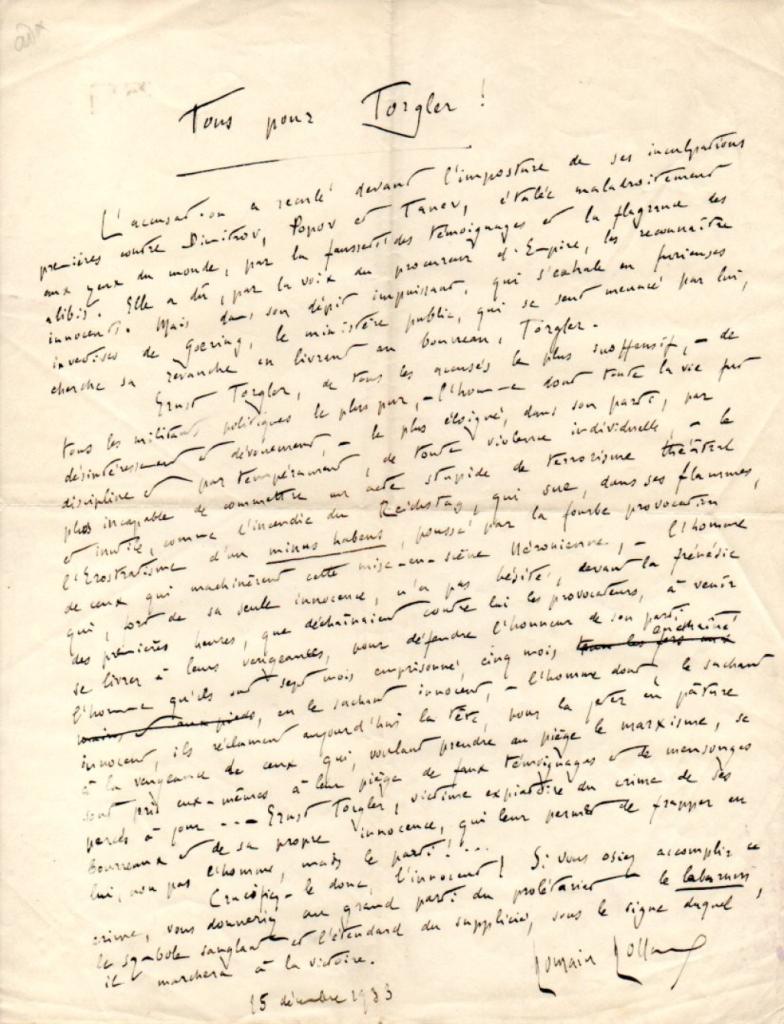 Tous pour Torgler !
L'accusation a reculé devant l'imposture de ses inculpations
premières contre Dimitrov, Popov et Tanev, étalée maladroitement
aux yeux du monde, par la fausseté des témoignages et la flagrance des
alibis. Elle a dû, par la voix du procureur d'Empire, les reconnaître
innocents. Mais dans son dépit impuissant, qui s'exhale en furieuses
invectives de Goering, le ministère public, qui se sent menacé par lui,
cherche sa revanche en livrant au bourreau, Torgler.
Ernst Torgler, de tous les accusés le plus inoffensif, – de
tous les militants politiques le plus pur, – l'homme dont toute la vie fut
désintéressement et dévouement, – le plus éloigné, dans son parti, par
discipline et par tempérament, de toute violence individuelle, – le
plus incapable de commettre un acte stupide de terrorisme théâtral
et inutile, comme l'incendie du Reichstag, qui sue, dans ses flammes,
l'Erostratisme d'un minus habens, poussé par la fourbe provocation
de ceux qui machinèrent cette mise-en-scène Néronienne, – l'homme
qui, fort de sa seule innocence, n'a pas hésité, devant la frénésie
des premières heures, que déchaînaient contre lui les provocateurs, à venir
se livrer à leurs vengeances, pour défendre l'honneur de son parti
l'homme qu'ils ont sept mois emprisonné, cinq mois enchaîné
, en le sachant innocent, – l'homme dont, le sachant
innocent, ils réclament aujourd'hui la tête, pour la jeter en pâture
à la vengeance de ceux qui, voulant prendre au piège le marxisme, se
sont pris eux-mêmes à leur piège de faux témoignages et de mensonges
percés à jour --- Ernst Torgler, victime expiatoire du crime de ses
bourreaux et de sa propre innocence, qui leur permet de frapper en
lui, non pas l'homme, mais le parti !...
Crucifiez-le donc, l'innocent ! Si vous osiez accomplir ce
crime, vous donneriez au grand parti du prolétariat le labarum,
le symbole sanglant et l'étendard du supplicié, sous le signe duquel,
il marchera à la victoire.
Romain Rolland
15 décembre 1933